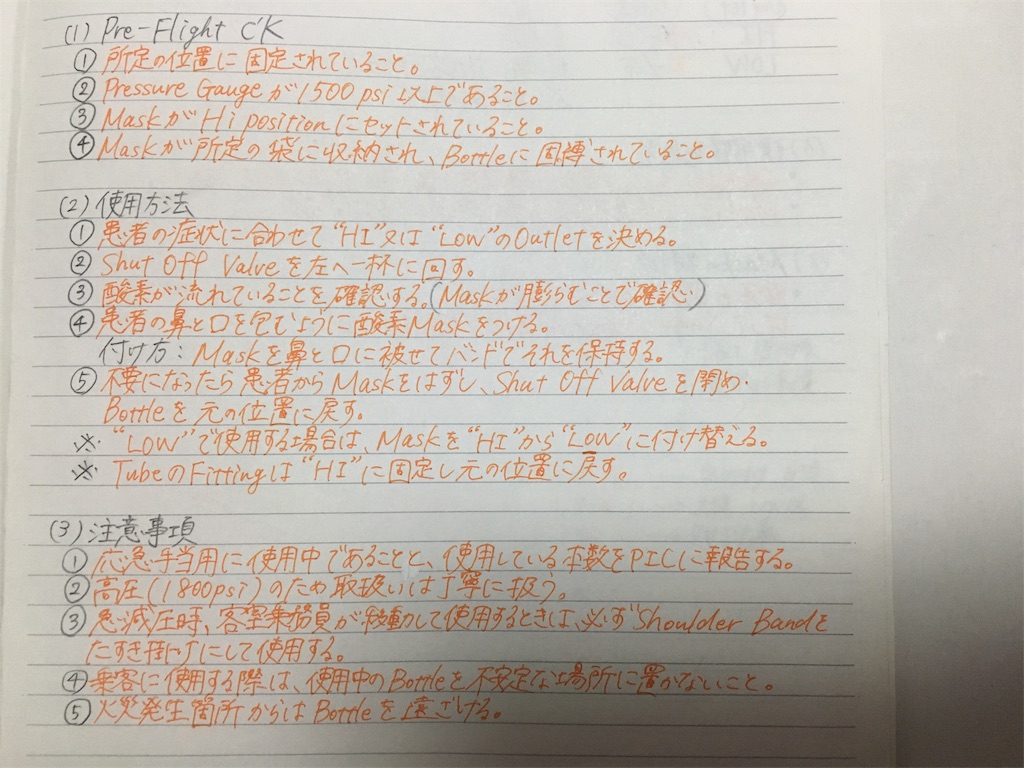 (1) Pre-Flight C'K
① 所定の位置に固定されていること。
② Pressure Gaugeが1500psi以上であること。
③ MaskがHi positionにセットされていること。
④ Maskが所定の袋に収納され、Bottleに固縛されていること。
(2) 使用方法
① 患者の症状に合わせて"HI"又は"LOW"のOutletを決める。
② Shut Off Valveを左へ一杯に回す。
③ 酸素が流れていることを確認する。(Maskが膨らむことで確認)
④ 患者の鼻と口を包むように酸素Maskをつける。
付け方:Maskを鼻と口に被せてバンドでそれを保持する。
⑤ 不要になったら患者からMaskをはずし、Shut Off Valveを閉め
Bottleを元の位置に戻す。
※ "LOW"で使用する場合は、Maskを"HI"から"LOW"に付け替える。
※ TubeのFittingは"HI"に固定し元の位置に戻す。
(3) 注意事項
① 応急手当用に使用中であることと、使用している本数をPICに報告する。
② 高圧(1800psi)のため取扱いは丁寧に扱う。
③ 急減圧時、客室乗務員が移動して使用するときは、必ずShoulder Bandを
たすき掛けにして使用する。
④ 乗客に使用する際は、使用中のBottleを不安定な場所に置かないこと。
⑤ 火災発生箇所からはBottleを遠ざける。